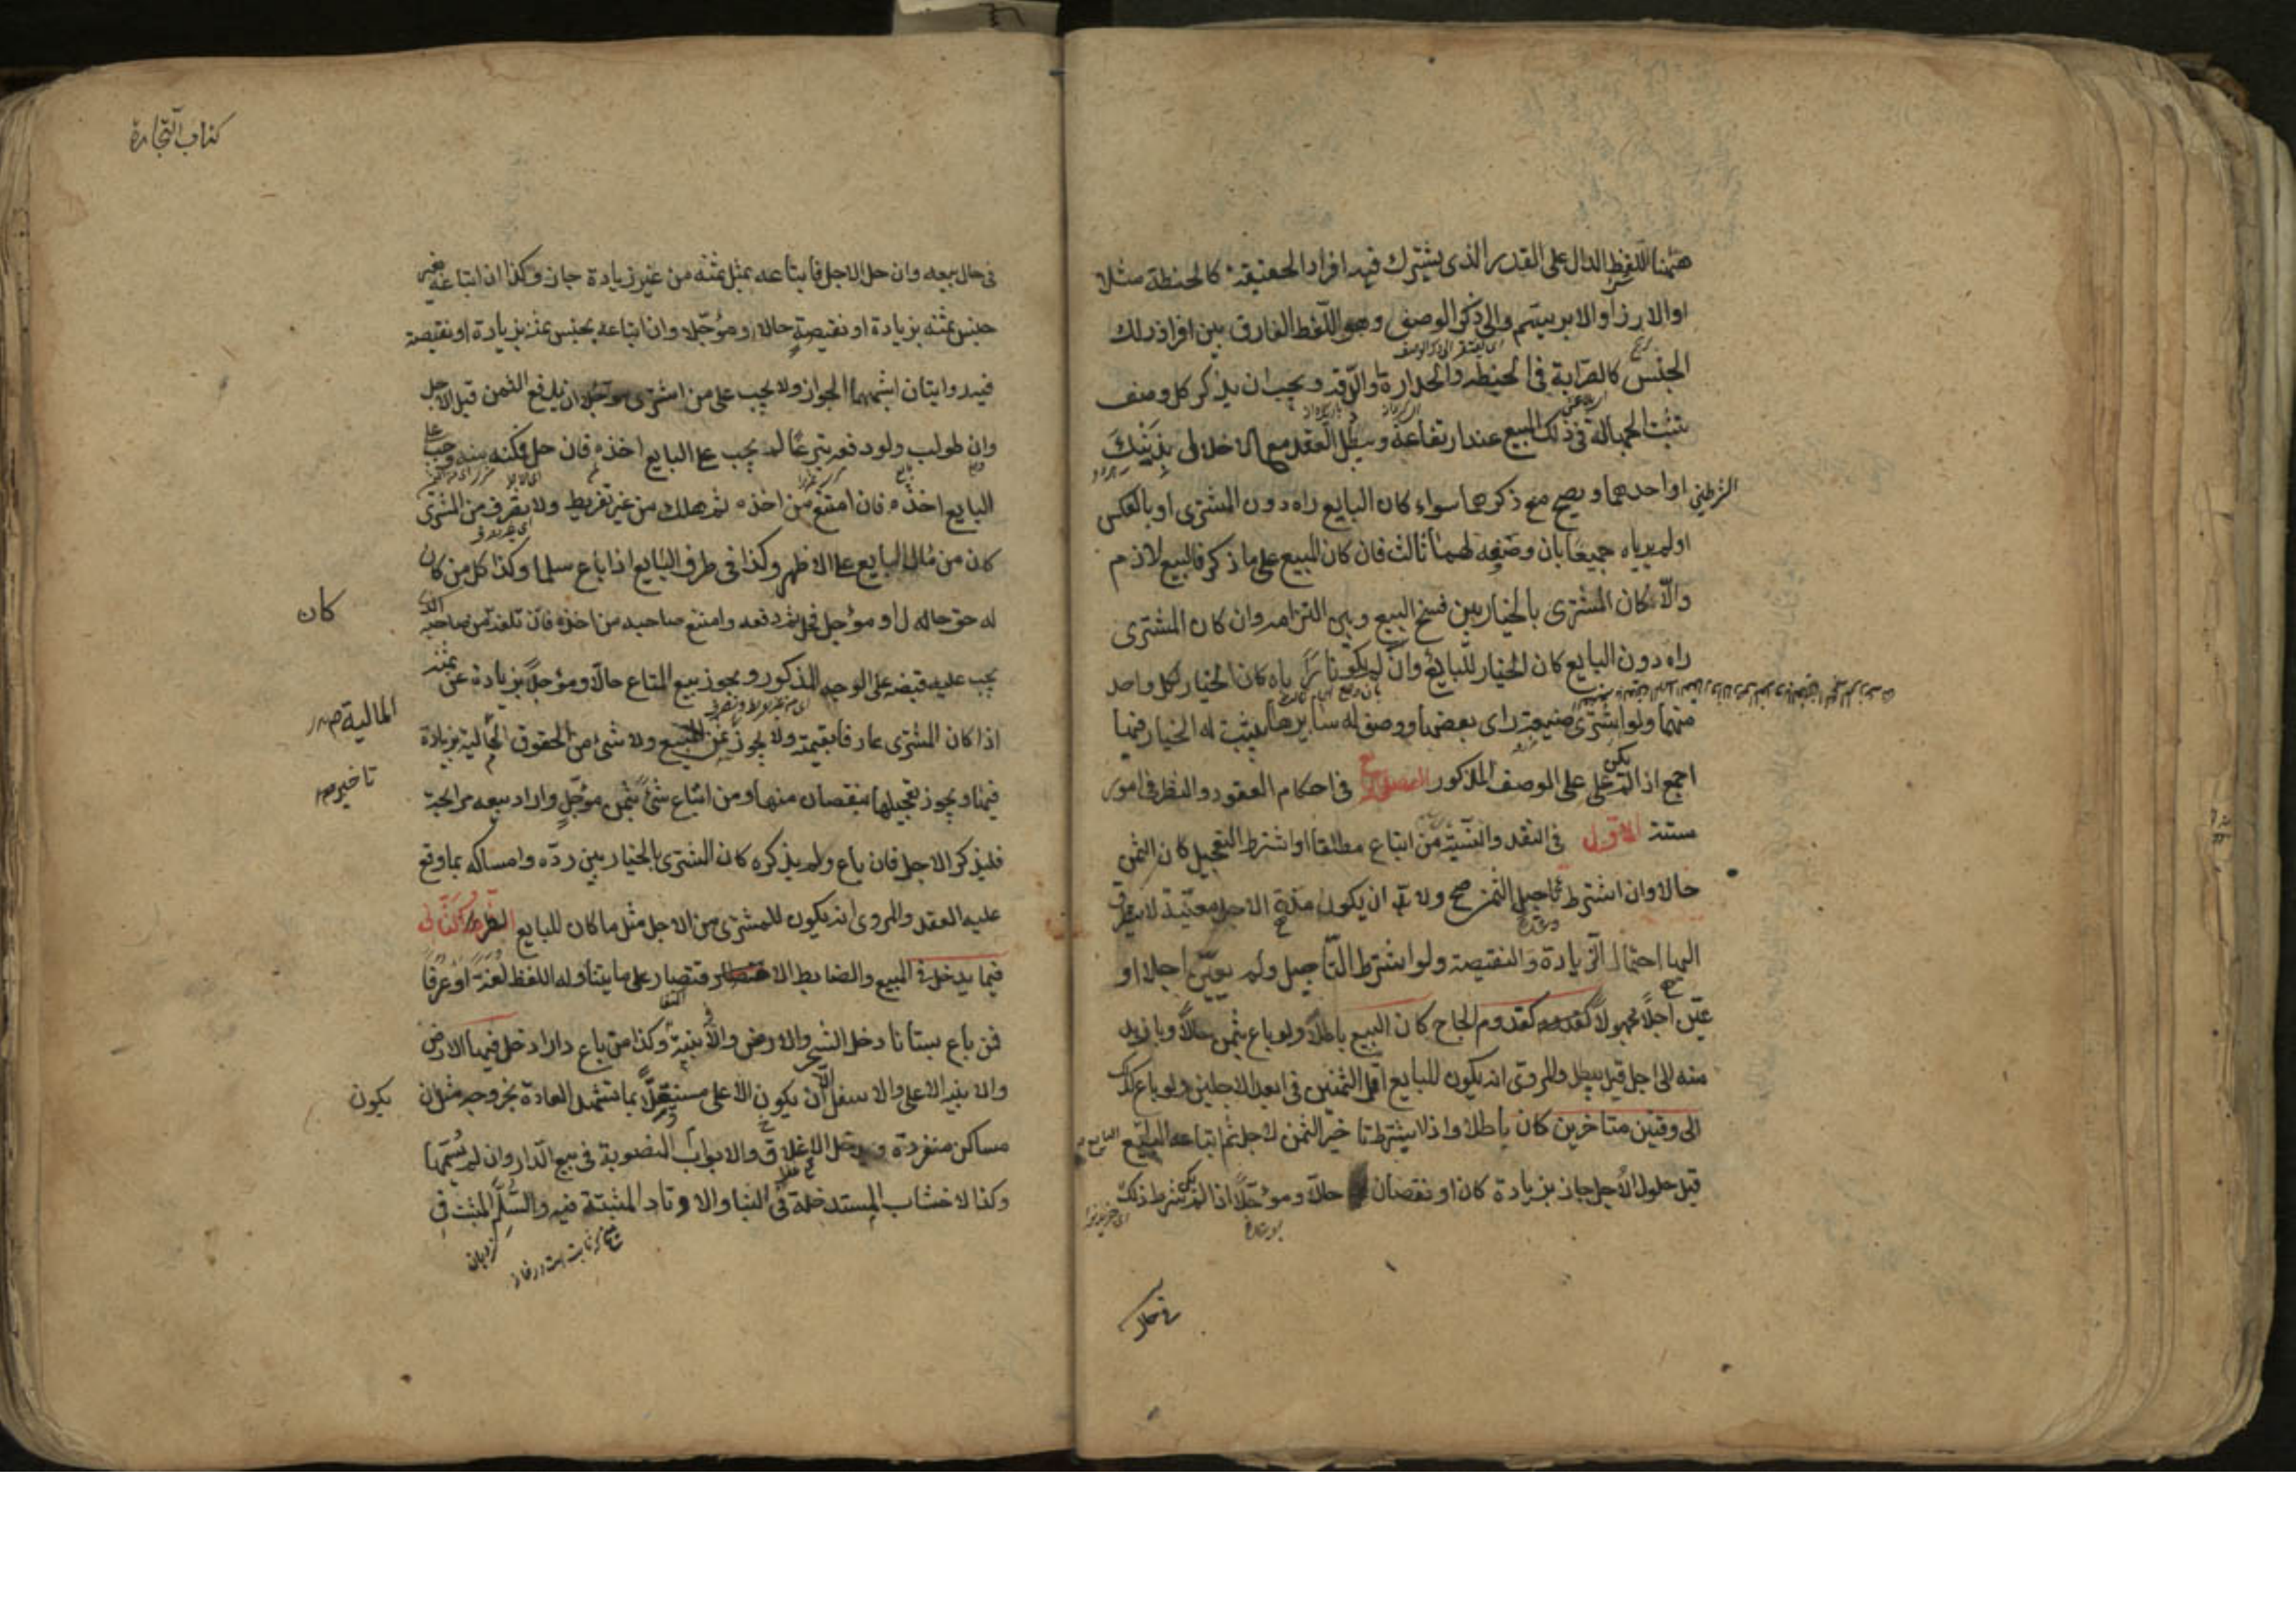 هٰهنا اللفظ الدال على القدر الذى يشترك فيه افراد الحقيقة كالحنطة مثلا
او الارز او الابريسم والى ذكر الوصف وهو اللفظ الفارق بين افراد ذلك
الجنس كالصرابة فى الحنطه والحدارة والرقه ويجب ان يذكر كل وصف
يثبت الجهالة فى ذلك المبيع عند ارتفاعه ويبطل العقد مع الاخلال بذينك
الشرطين او احدهما ويصح مع ذكرهما سواء كان البايع راه دون المشترى او بالعكس
او لم يرياه جميعًا بان وصفه لهما ثالث فان كان المبيع على ما ذكر فالبيع لازم
والّا كان المشترى بالخيار بين فسخ البيع وبين التزامه وان كان المشترى
راه دون البايع كان الخيار للبايع وان لم يكونا رأياه كان الخيار لكل واحد
منهما ولو اشترى ضيعة راى بعضها ووصف له سايرها يثبت له الخيار فيها
اجمع اذا لم يكن على على الوصف المذكور الفصل فى احكام العقود والنظر فى امور
ستة الاول فى النقد والنسية من ابتاع مطلقا او اشترط التعجيل كان الثمن
حالا وان اشترط تاجيل الثمن صح ولا بد ان يكون مدة الاجل معيّنة لا يتطرق
اليها احتمال الزيادة والنقيصة ولو اشترط التأجيل ولم يعيّن اجلا او
عيّن اجلًا مجهولًا كقدوم الحاج كان البيع باطلا ولو باع بثمن حالًا وبازيد
منه الى اجل قيل يبطل والمروى انه يكون للبايع اقل الثمنين فى ابعد الاجلين ولو باع كذلك
الى وقتين متاخرين كان باطلا واذا يشترط تا خير الثمن لاجل ثم ابتاعه البايع
قبل حلول الاجل جاز بزيادة كان او نقصان حالًا ومؤجّلًا اذا لم يكن شرط ذلك
فى حال
كتاب التجارة
فى حال بيعه وان حل الاجل فابتاعه بمثل ثمنه من غير زيادة جاز وكذا ان ابتاعه بغير
جنس ثمنه بزيادة او نقيصةٍ حالا او مؤجّلا وان ابتاعه بجنس ثمنه بزيادة او نقيصة
فيه روايتان اشبههما الجواز ولا يجب على من اشترى مؤجلا ان يدفع الثمن قبل الاجل
وان طولب ولو دفعه تبرعًا لم يجب على البايع اخذه فان حل فمكنه منه وجب على
البايع اخذه فان امتنع من اخذه ثم هلك من غير تفريط ولا بتصرف من المشترى
كان من مال البايع على الاظهر وكذا فى طرف البايع اذا باع سلما وكذا كل من كان
كان
له حق حال او مؤجل فحل ثم دفعه وامتنع صاحبه من اخذه فان تلفه من صاحبه الذى
يجب عليه قبضه على الوجه المذكور ويجوز بيع المتاع حالًا ومؤجلًا بزيادة عن ثمنه
اذا كان المشترى عارفا بقيمته ولا يجوز ثمن المبيع ولا شئ من الحقوق المالية بزيادة
المالية
تاخير
فيها ويجوز تعجيلها بنقصان منها ومن ابتاع شئ بثمن مؤجّلٍ واراد بيعه مرابحة
فليذكر الاجل فان باع ولم يذكره كان المشترى بالخيار بين ردّه وامساكه بما وقع
عليه العقد والمروى انه يكون للمشترى من الاجل مثل ما كان للبايع النظر الثانى
فيما يدخل فى المبيع والضابط الاقتصار على ما يتناوله اللفظ لغةً او عرفًا
فمن باع بستانا دخل الشجر والارض والأبنية وكذا من باع دارا دخل فيها الارض
والابنيه الاعلى والاسفل الّا ان يكون الاعلى مستقلًّا بما تشهد العادة بخروجه مثل ان
يكون
مساكن منفردة ويدخل الاغلاق والابواب المنصوبة فى بيع الدار وان لم يُسمّها
وكذا الاخشاب المستدخلة فى البنا والاوتاد المثبتة فيه والسُّلّم المثبت فى
نردبان